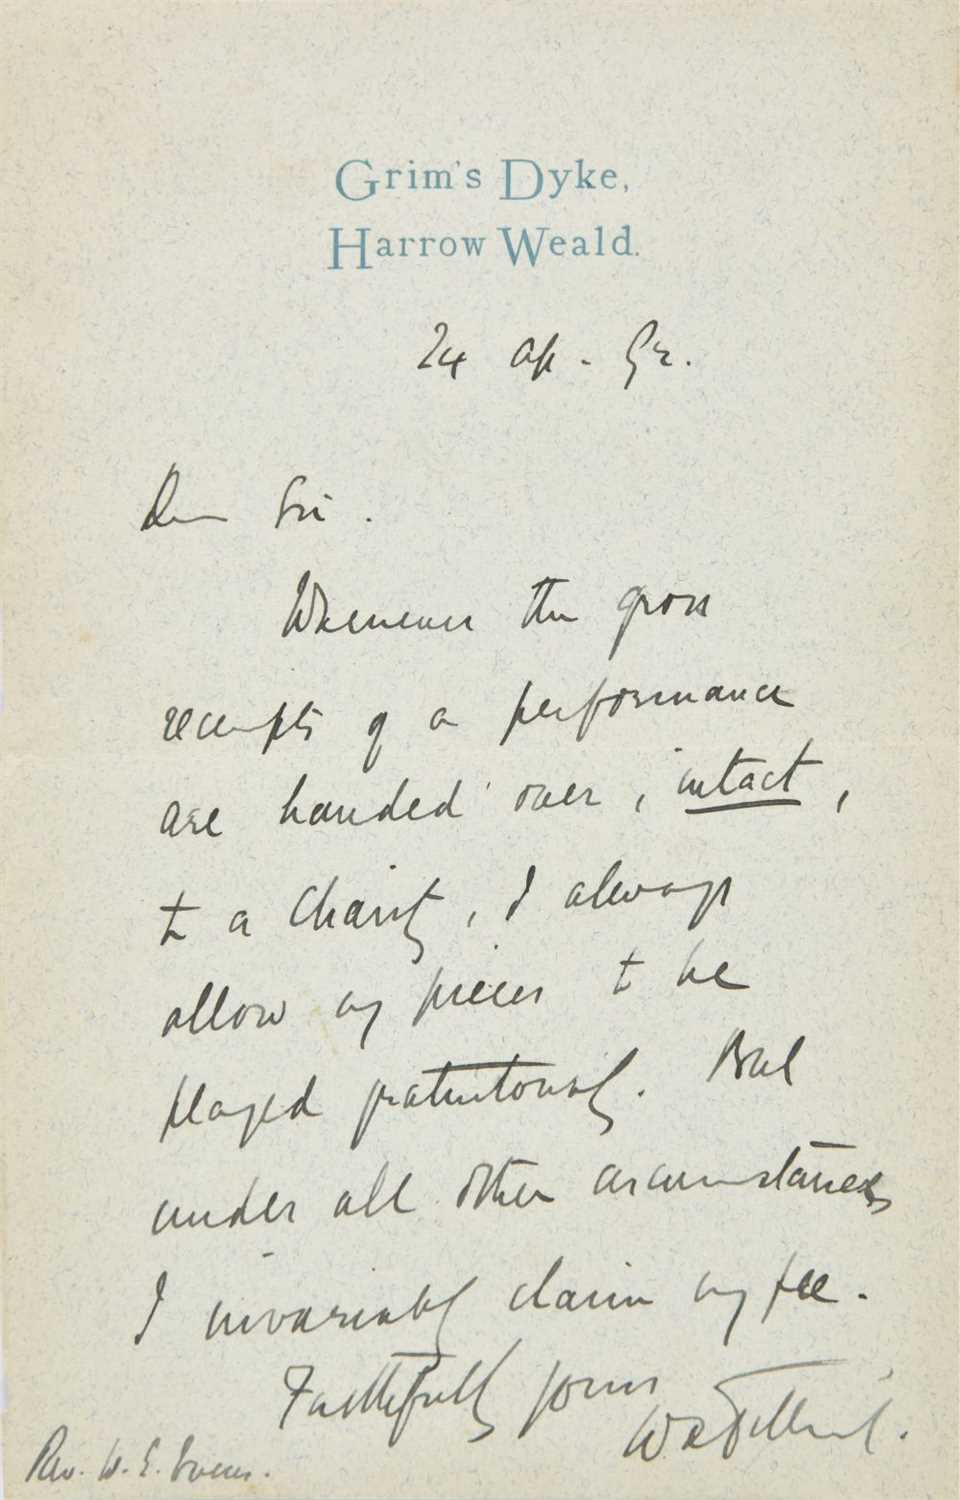 Grim's Dyke,
Harrow Weald.
24 Ap. 92.
Dear Sir.
Whenever the gross
receipts of a performance
are handed over, intact,
to a Charity, I always
allow my pieces to be
played gratuitously. But
under all other circumstances
I invariably claim my fee.
Faithfully yours
WS Gilbert.
Rev. W. E. Evans.